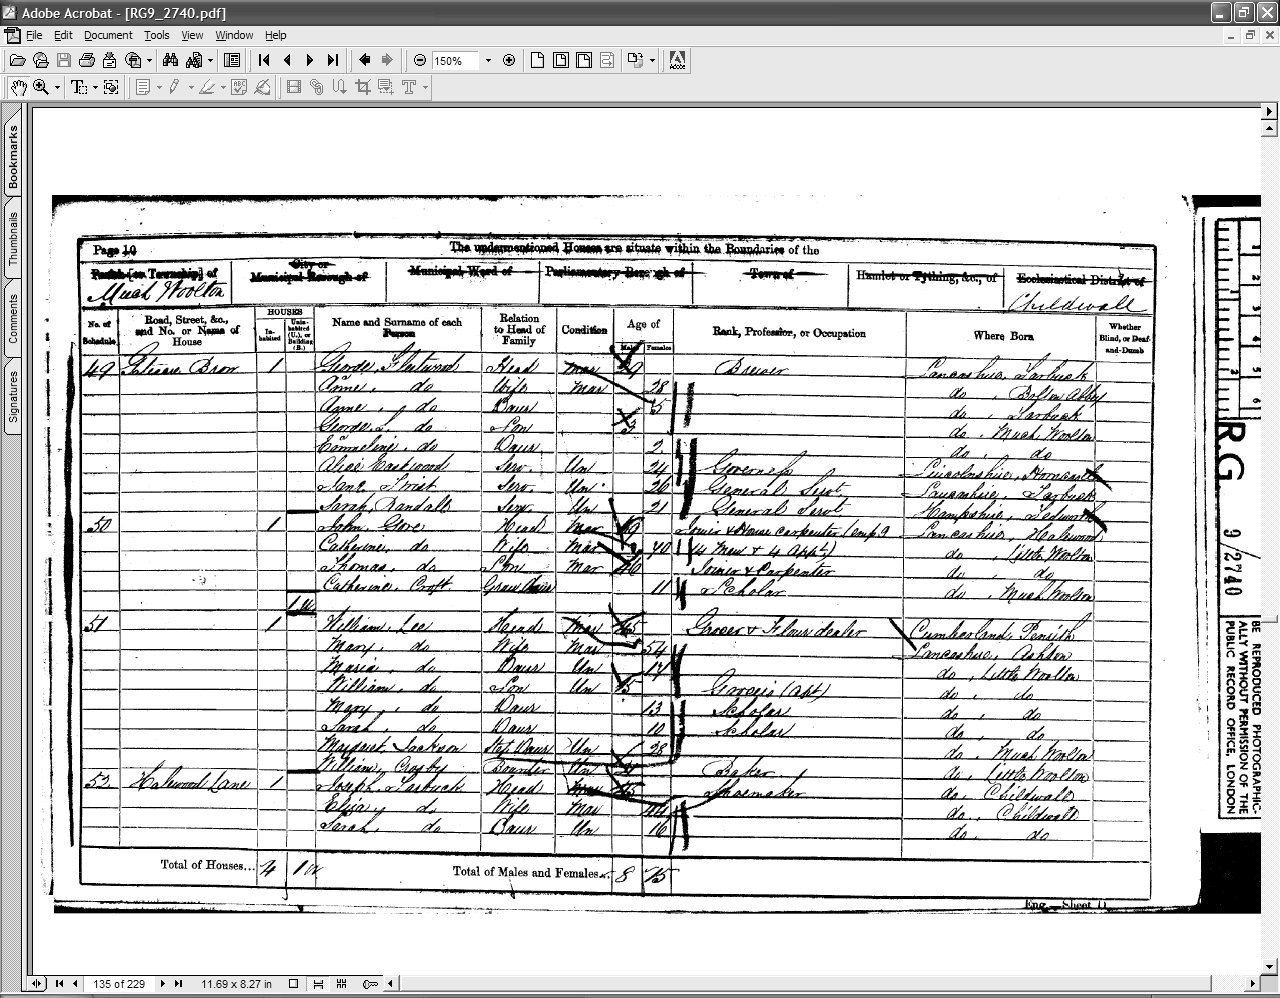 Adobe Acrobat - [RG9_2740.pdf]
File Edit Document Tools View Window Help
150%
Bookmarks
Thumbnails
Comments
Signatures
Page 10
The undermentioned Houses are situate within the Boundaries of the
Parish [or Township] of
City or
Municipal Borough of
Municipal Ward of
Parliamentary Borough of
Town of
Hamlet or Tything, &c., of
Ecclesiastical District of
Much Woolton
Childwall
No. of Schedule
Road, Street, &c., and No. or Name of House
HOUSES
Inhabited
Uninhabited (U.), or Building (B.)
Name and Surname of each Person
Relation to Head of Family
Condition
Age of
Males
Females
Rank, Profession, or Occupation
Where Born
Whether Blind, or Deaf-and-Dumb
49 Brow 1 George Fleetwood Head Mar 29 Brewer Lancashire, Tarbuck
Anne, do Wife Mar 28 do, Bolton Abby
Anne, do Daur 5 do, Tarbuck
George L. do Son 3 do, Much Woolton
Emmeline, do Daur 2 do, do
Alice Eastwood Serv. Un 24 Governess Lincolnshire, Horncastle
Jane Serv. Un 26 General Servt. Lancashire, Tarbuck
Sarah, Randall Serv. Un 21 General Servt Hampshire,
50 1 John, Glove Head Mar 69 Joiner & House carpenter (emp 9 Lancashire, Halewood
Catherine, do Wife Mar 70 (4 Men & 4 Appt) do, Little Woolton
Thomas, do Son Mar 46 Joiner & Carpenter do, do
Catherine, Croft Grand Daur 11 Scholar do, Much Woolton
1 U
51 1 William, Lee Head Mar 65 Grocer & Flour dealer Cumberland, Penrith
Mary, do Wife Mar 54 Lancashire, Ashton
Maria, do Daur Un 17 do, Little Woolton
William, do Son Un 15 (Apt) do, do
Mary, do Daur 13 Scholar do, do
Sarah, do Daur 10 Scholar do, do
Margaret, Jackson Step Daur Un 28 do, Much Woolton
William, Boarder Un Baker do, Little Woolton
52 Halewood Lane 1 Joseph, Tarbuck Head Mar 45 Shoemaker do, Childwall
Eliza, do Wife Mar 44 do, Childwall
Sarah, do Daur Un 16 do, do
Total of Houses... 4 1 U
Total of Males and Females.. 8 15
Eng.—Sheet D.
RG 9/2740
BE REPRODUCED PHOTOGRAPHIC-
ALLY WITHOUT PERMISSION OF THE
PUBLIC RECORD OFFICE, LONDON
135 of 229
11.69 x 8.27 in